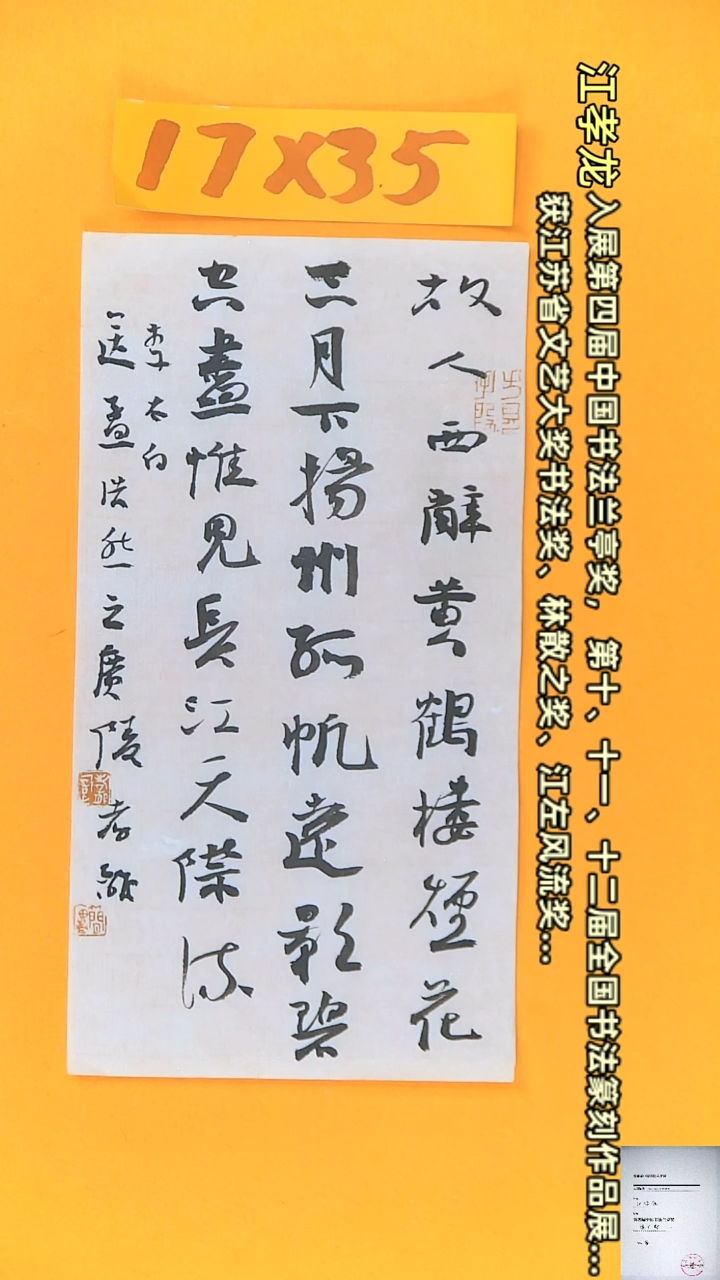 17X35
江孝龙 入展第四届中国书法兰亭奖，第十、十一、十二届全国书法篆刻作品展...
获江苏省文艺大奖书法奖、林散之奖、江左风流奖...
故人西辭黄鶴樓煙花
三月下揚州孤帆遠影碧
空盡惟見長江天際流
李太白
送孟浩然之廣陵 孝龍